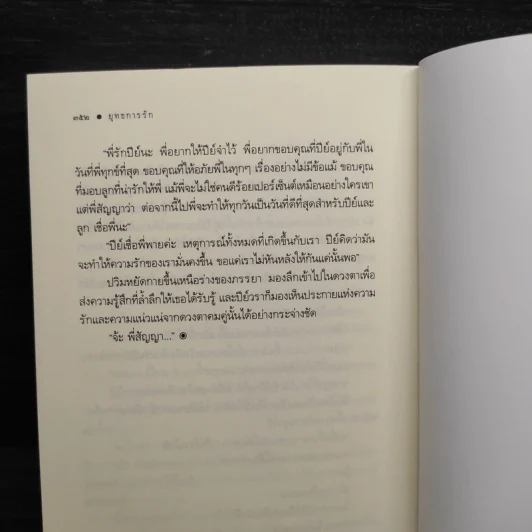 ๓๕๒ ● ยุทธการรัก
"พี่รักปีย์นะ พี่อยากให้ปีย์จำไว้ พี่อยากขอบคุณที่ปีย์อยู่กับพี่ใน
วันที่พี่ทุกข์ที่สุด ขอบคุณที่ให้อภัยพี่ในทุกๆ เรื่องอย่างไม่มีข้อแม้ ขอบคุณ
ที่มอบลูกที่น่ารักให้พี่ แม้พี่จะไม่ใช่คนดีร้อยเปอร์เซ็นต์เหมือนอย่างใครเขา
แต่พี่สัญญาว่า ต่อจากนี้ไปพี่จะทำให้ทุกวันเป็นวันที่ดีที่สุดสำหรับปีย์และ
ลูก เชื่อพี่นะ"
"ปีย์เชื่อพี่พายค่ะ เหตุการณ์ทั้งหมดที่เกิดขึ้นกับเรา ปีย์คิดว่ามัน
จะทำให้ความรักของเรามั่นคงขึ้น ขอแค่เราไม่หันหลังให้กันแค่นั้นพอ"
ปวิมหยัดกายขึ้นเหนือร่างของภรรยา มองลึกเข้าไปในดวงตาเพื่อ
ส่งความรู้สึกที่ล้ำลึกให้เธอได้รับรู้ และปีย์วราก็มองเห็นประกายแห่งความ
รักและความแน่วแน่จากดวงตาคมคู่นั้นได้อย่างกระจ่างชัด
"จ้ะ พี่สัญญา..." ◉